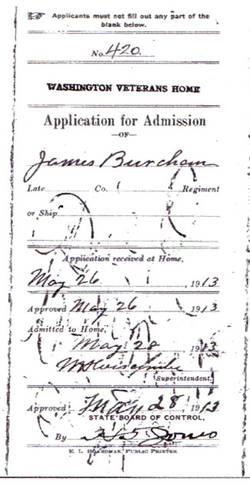 Applicants must not fill out any part of the
blank below.
No. 420
WASHINGTON VETERANS HOME
Application for Admission
—OF—
James Burcham
Late Co. Regiment
or Ship
Application received at Home,
May 26 1913
Approved May 26 1913
Admitted to Home,
May 28 1913
Superintendent.
Approved May 28 1913
STATE BOARD OF CONTROL,
By Jones
E. L. BOARDMAN, PUBLIC PRINTER